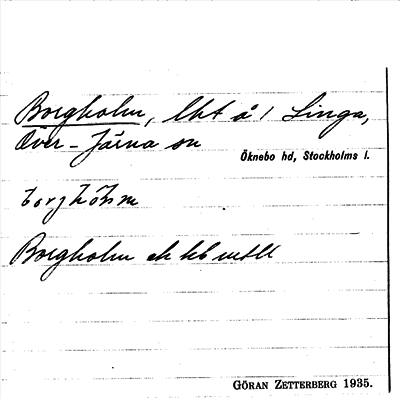 Borgholm, lht å 1 Linga,
Över-Järna sn
Öknebo hd, Stockholms l.
borghòlm
Borgholm ek kb
GÖRAN ZETTERBERG 1935.